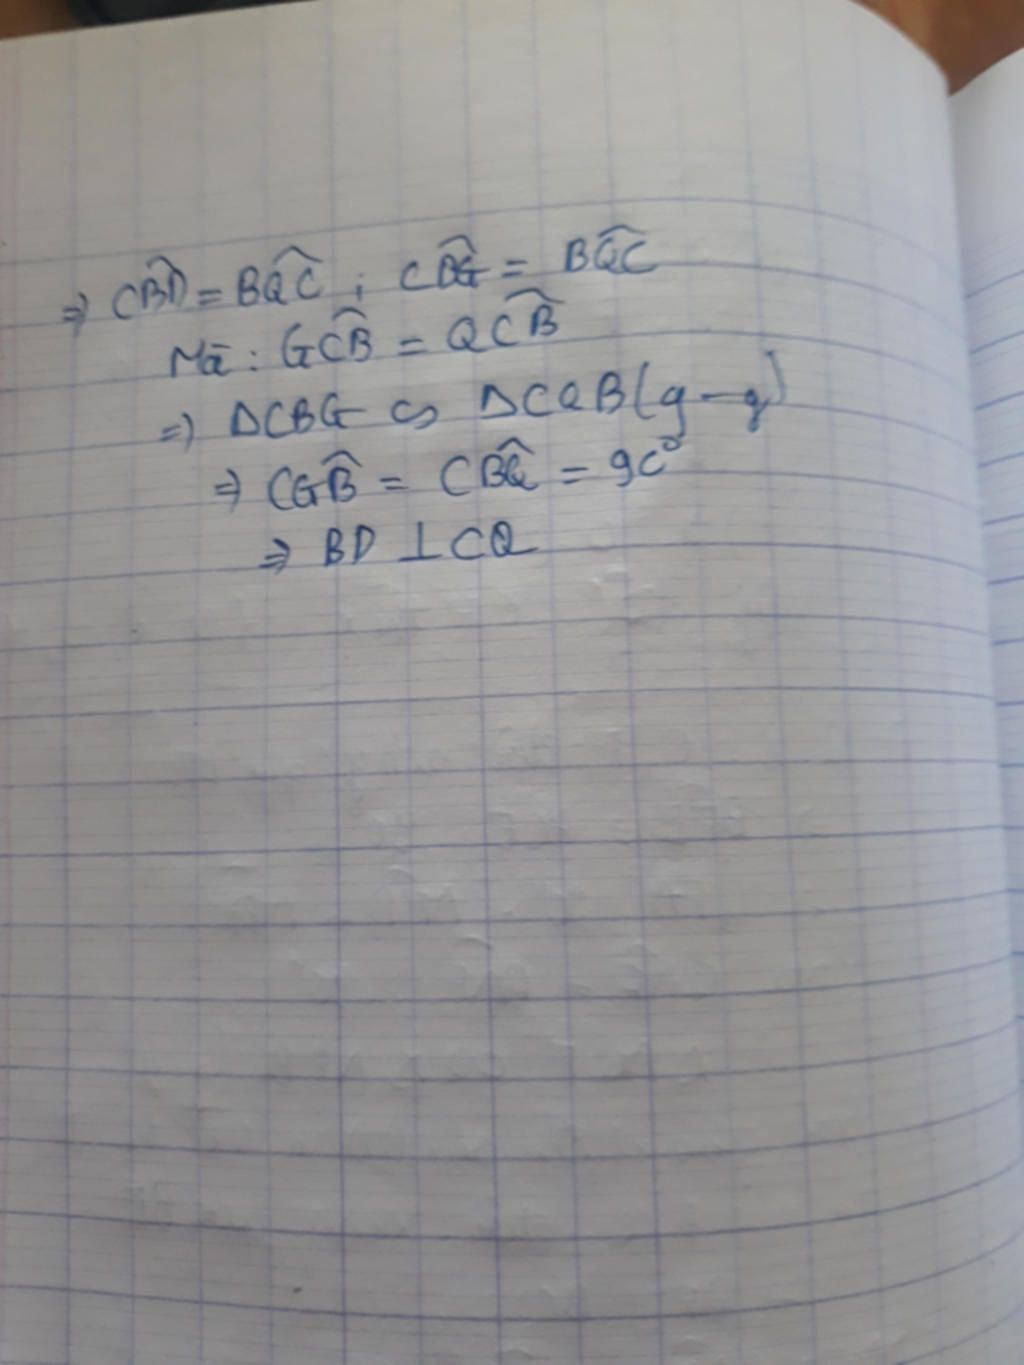 ⇒ CB̂D = BQ̂C ; CB̂G = BQ̂C
Mà : GĈB = QĈB
⇒ ΔCBG ∽ ΔCQB (g-g)
⇒ CĜB = CB̂Q = 90°
⇒ BD ⊥ CQ